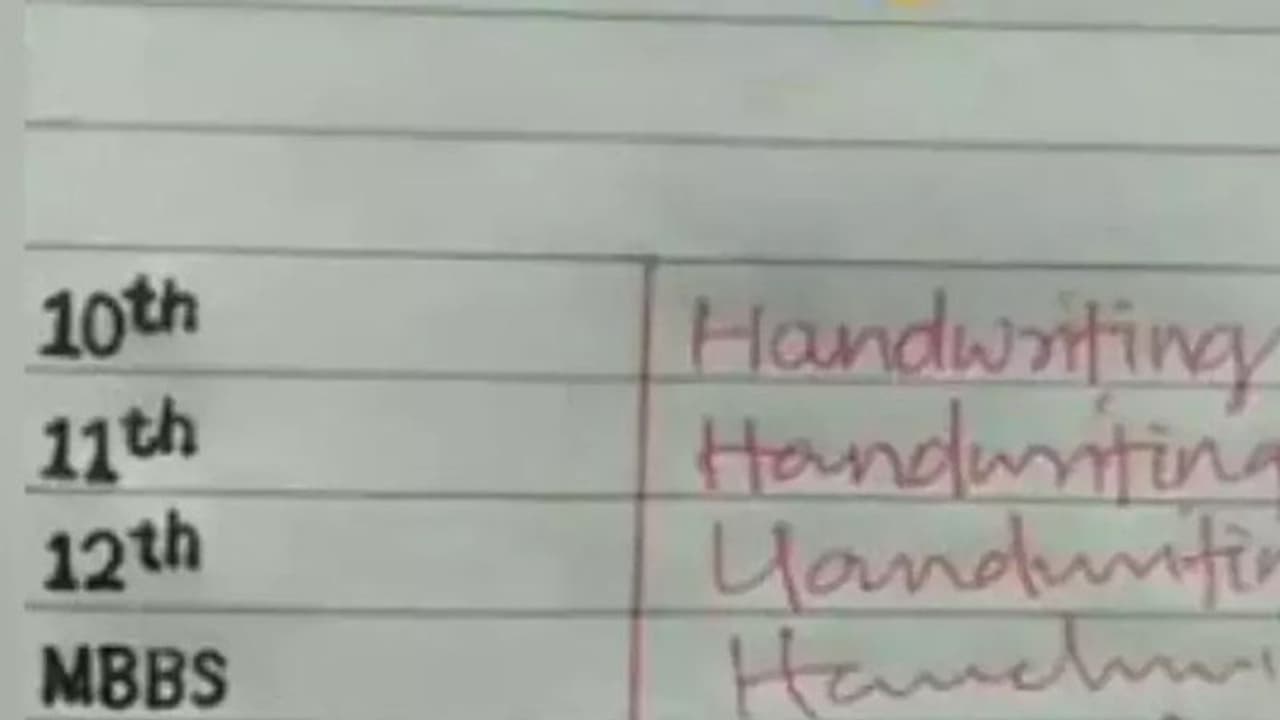 10th Handwriting
11th Handwriting
12th Handwritin
MBBS Handwri